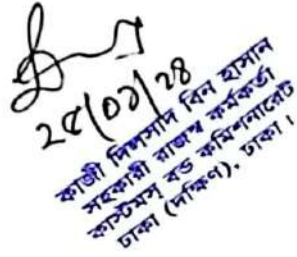 ২৫/০১/২৪
কাজী দিলসাদ বিন হাসান
সহকারী রাজস্ব কর্মকর্তা
কাস্টমস্ বন্ড কমিশনারেট
ঢাকা (দক্ষিণ), ঢাকা।